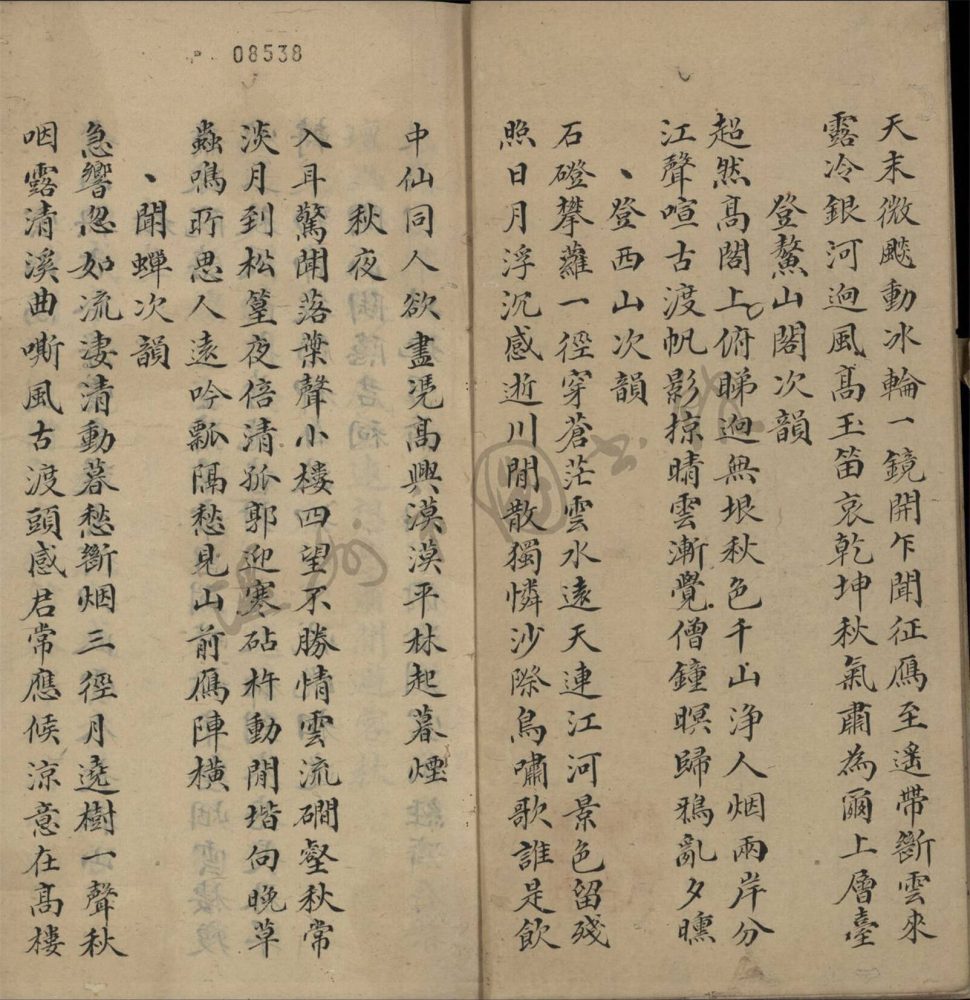 天末微颸動冰輪一鏡開乍聞征鴈至遙帶斷雲來
露冷銀河迥風髙玉笛哀乾坤秋氣肅為爾上層臺
登鰲山閣次韻
超然髙閣上俯睇迥無垠秋色千山浄人烟兩岸分
江聲喧古渡帆影掠晴雲漸覺僧鐘暝歸鴉亂夕曛
、登西山次韻
石磴攀蘿一徑穿蒼茫雲水遠天連江河景色留殘
照日月浮沉感逝川閒散獨憐沙際鳥嘯歌誰是飲
中仙同人欲盡凴髙興漠漠平林起暮煙
秋夜
入耳驚聞落葉聲小樓四望不勝情雲流磵壑秋常
淡月到松篁夜倍清孤郭迎寒砧杵動閒堦向晚草
蟲鳴所思人遠吟瓢隔愁見山前鴈陣橫
、聞蟬次韻
急響忽如流淒清動暮愁斷烟三徑月遶樹一聲秋
咽露清溪曲嘶風古渡頭感君常應候涼意在髙樓
08538